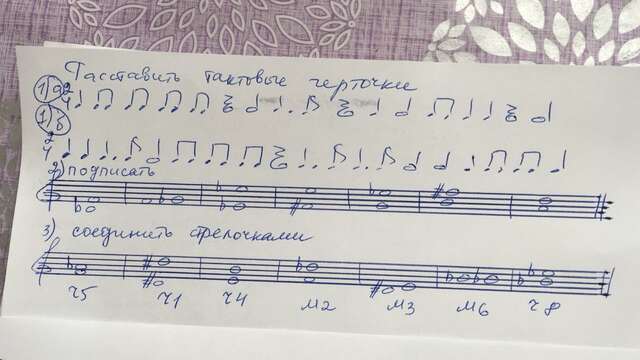 Расставить тактовые черточки
1) а) 2/4
1) б)
2/4
2) подписать
3) соединить стрелочками
ч5 ч1 ч4 м2 м3 м6 ч8